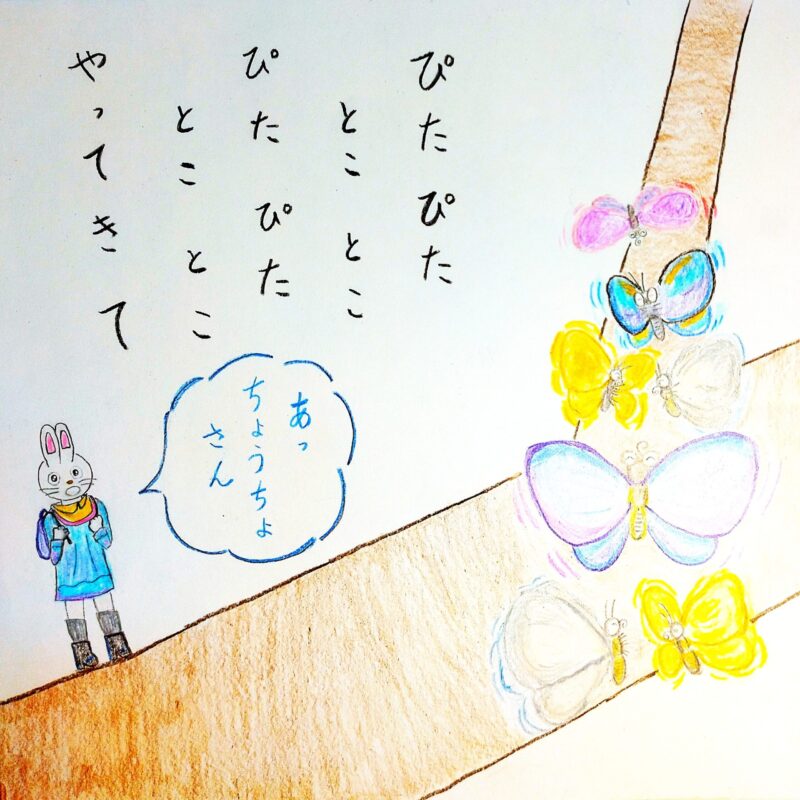 ぴたぴた
とことこ
ぴたぴた
とことこ
やってきて
あっ
ちょうちょ
さん